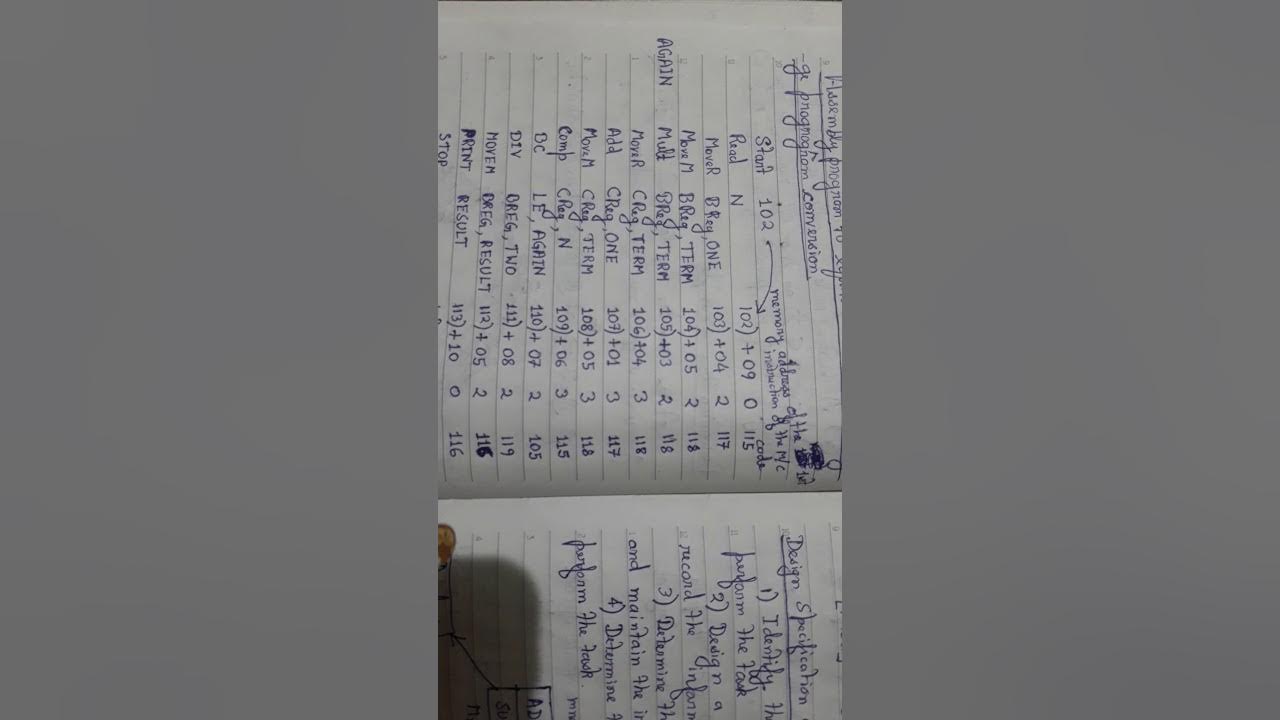 Assembly program to
-ge progrogrom conversion
memory address of the 1st
instruction of the M/c
code
Start 102
Read N 102) + 09 0 115
MoveR BReg,ONE 103) + 04 2 117
MoveM BReg, TERM 104) + 05 2 118
AGAIN Mult BReg, TERM 105) +03 2 118
MoveR CReg, TERM 106)+04 3 118
Add CReg, ONE 107)+01 3 117
MoveM CReg, TERM 108)+05 3 118
Comp CReg, N 109)+06 3 115
BC LE, AGAIN 110)+ 07 2 105
DIV BREG, TWO 111) + 08 2 119
MOVEM BREG, RESULT 112) + 05 2 116
PRINT RESULT 113)+ 10 0 116
STOP
Design Specification
1) Identify the
perform the task
2) Design a
record the inform
3) Determine th
and maintain the in
4) Determine t
perform the task.
AD
SU